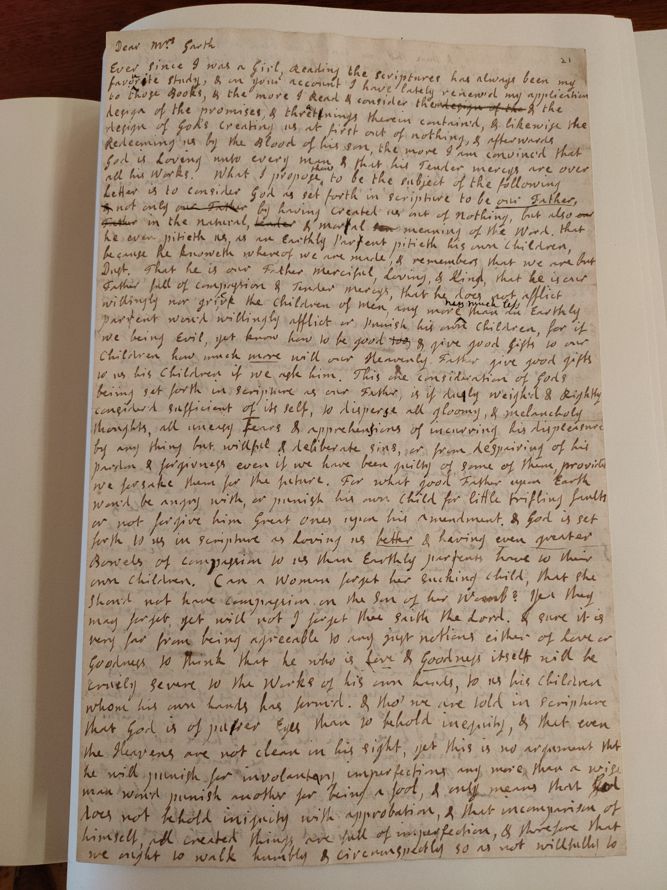 Dear Mrs. Garth
21
Ever since I was a Girl, Reading the scriptures has always been my
favorite study, & on your account I have lately renew'd my application
to those Books, & the more I Read & consider the design of the & the
design of the promises, & thretnings therein contain'd, & likewise the
design of Gods creating us at first out of nothing, & afterwards
Redeeming us by the Blood of his son, the more I am convinc'd that
God is Loving unto every man & that his Tender mercys are over
all his works. What I propose then, to be the subject of the following
letter is to consider God as set forth in scripture to be our Father,
& not only our Father by having created us out of nothing, but also
Father in the natural, & moral meaning of the Word, that
he ever pitieth us, as an Earthly Parent pitieth his own Children,
because he knoweth whereof we are made, & remembers that we are but
Dust. That he is our Father merciful, Loving, & Kind, that he is our
Father full of compassion & Tender mercys, that he does not afflict
willingly nor grive the Children of men, any more nay much less than an Earthly
parent wou'd willingly afflict or Punish his own Children, for if
we being Evil, yet know how to be good & give good Gifts to our
Children how much more will our Heavenly Father give good gifts
to us his Children if we ask him. This one consideration of Gods
being set forth in scripture as our Father, is if duly weigh'd & Rightly
consider'd sufficient of its self, to disperse all gloomy, & melancholy
thoughts, all uneasy Fears & apprehensions of incurring his displeasure
by any thing but willful & deliberate sins, or from despairing of his
pardon & forgivness even if we have been guilty of some of them, provided
we forsake them for the future. For what good Father upon Earth
wou'd be angry with, or punish his own Child for little trifling faults
or not forgive him Great ones upon his Amendment, & God is set
forth to us in scripture as Loving us better & having even greater
Bowels of compassion to us than Earthly parents have to their
own Children. Can a Woman forget her sucking Child, that she
shoud not have compassion on the Son of her Womb? Yea they
may forget, yet will not I forget thee saith the Lord. & sure it is
very far from being agreeable to any just notions either of Love or
Goodness to think that he who is Love & Goodness itself will be
cruely severe to the Works of his own hands, to us his Children
whom his own hands has form'd. & tho' we are told in scripture
that God is of purer Eyes than to behold inequity, & that even
the Heavens are not clean in his sight, yet this is no argument that
he will punish for involuntary imperfections any more than a wise
man wou'd punish another for being a fool, & only means that God
does not behold iniquity with approbation, & that incomparison of
himself, all created things are full of imperfection, & therefore that
we ought to walk humbly & circumspectly so as not willfully to